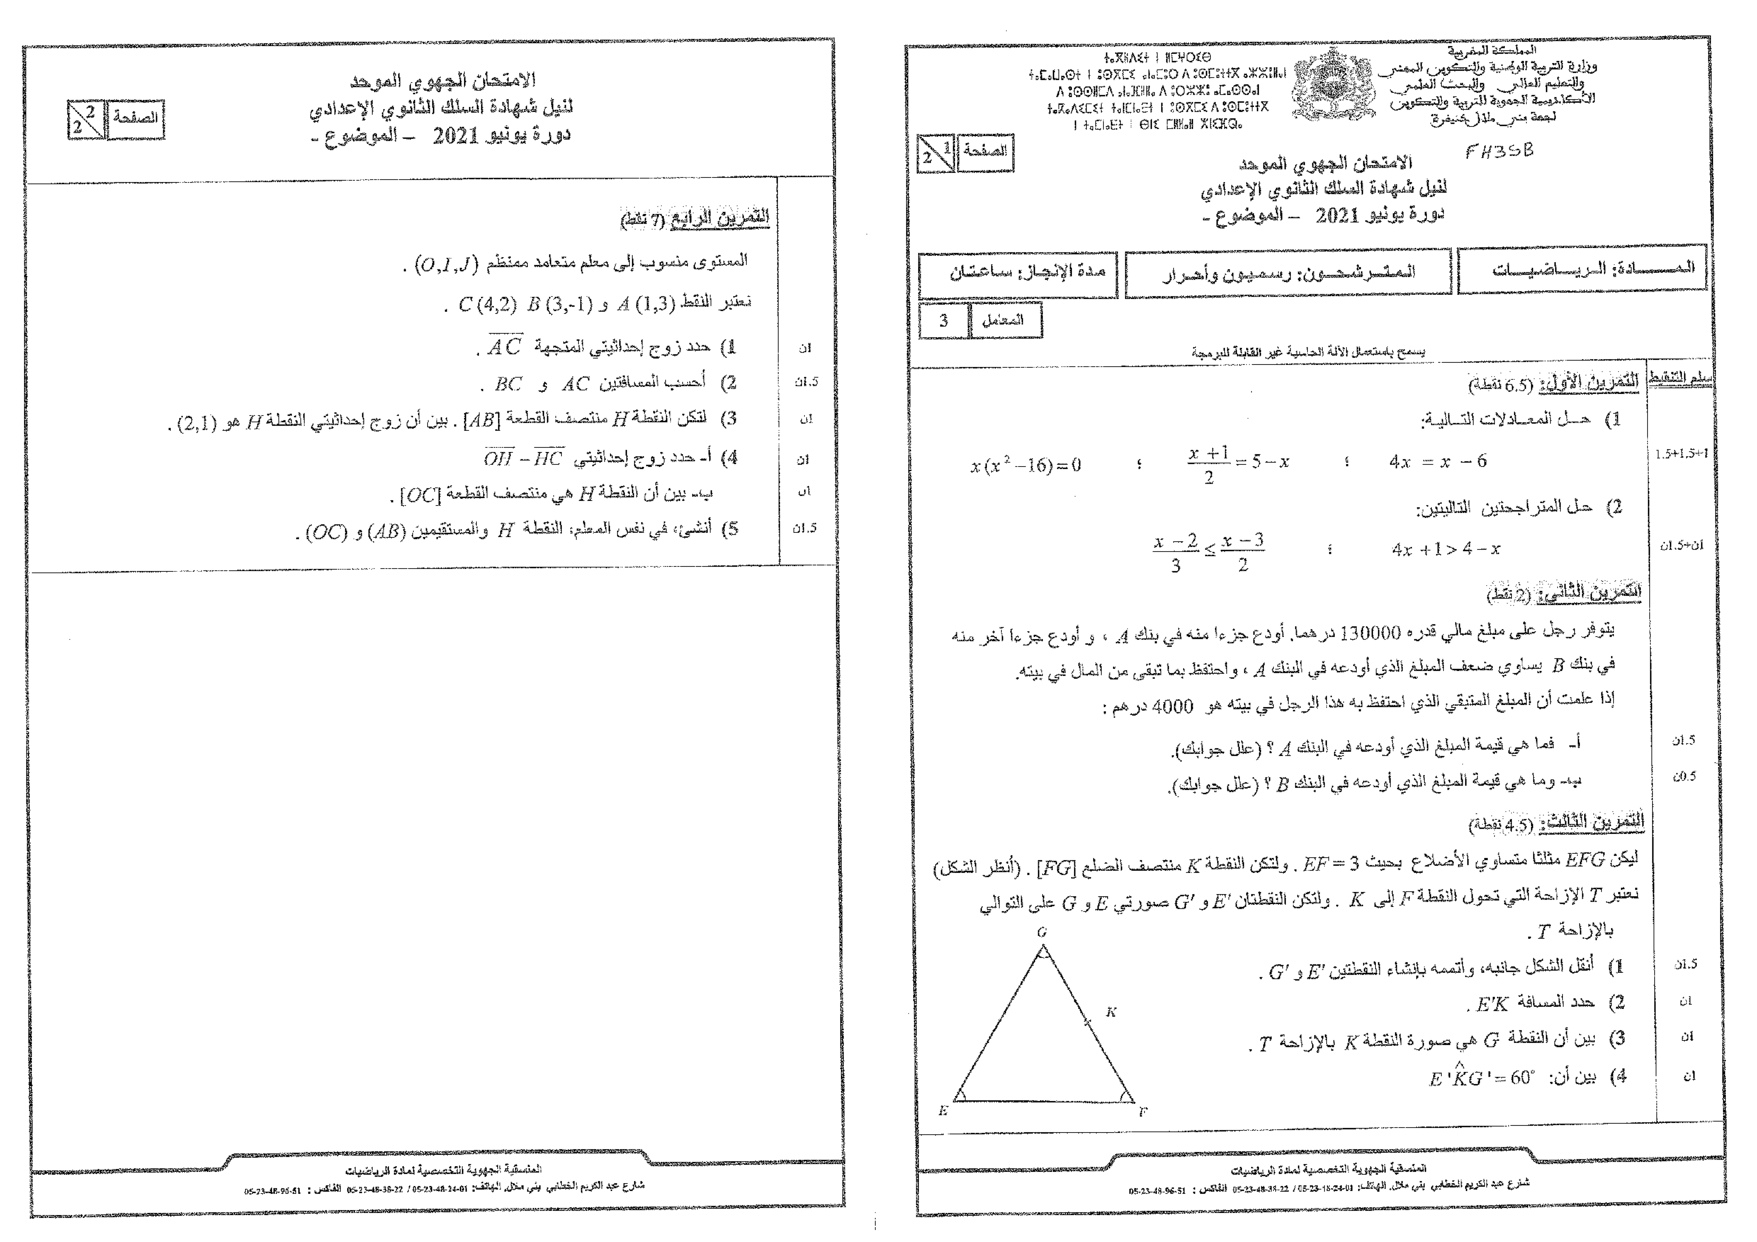 المملكة المغربية
وزارة التربية الوطنية والتكوين المهني
والتعليم العالي والبحث العلمي
الأكاديمية الجهوية للتربية والتكوين
لجهة بني ملال خنيفرة
FH3SB
الصفحة
1
2
الامتحان الجهوي الموحد
لنيل شهادة السلك الثانوي الإعدادي
دورة يونيو 2021 – الموضوع -
المـــــادة: الريـاضيـــات
المترشحـون: رسميون وأحرار
مدة الإنجاز: ساعتان
المعامل 3
يسمح باستعمال الآلة الحاسبة غير القابلة للبرمجة
سلم التنقيط
التمرين الأول: (6.5 نقطة)
1) حـل المعـادلات التـاليـة:
1.5+1.5+1
4x = x − 6 ؛ (x + 1)/2 = 5 − x ؛ x(x² − 16) = 0
2) حل المتراجحتين التاليتين:
1ن+1.5ن
4x + 1 > 4 − x ؛ (x − 2)/3 ≤ (x − 3)/2
التمرين الثاني: (2 نقط)
يتوفر رجل على مبلغ مالي قدره 130000 درهما. أودع جزءا منه في بنك A ، و أودع جزءا آخر منه
في بنك B يساوي ضعف المبلغ الذي أودعه في البنك A ، واحتفظ بما تبقى من المال في بيته.
إذا علمت أن المبلغ المتبقي الذي احتفظ به هذا الرجل في بيته هو 4000 درهم :
1.5ن
أ- فما هي قيمة المبلغ الذي أودعه في البنك A ؟ (علل جوابك).
0.5ن
ب- وما هي قيمة المبلغ الذي أودعه في البنك B ؟ (علل جوابك).
التمرين الثالث: (4.5 نقطة)
ليكن EFG مثلثا متساوي الأضلاع بحيث EF = 3 . ولتكن النقطة K منتصف الضلع [FG] . (أنظر الشكل)
نعتبر T الإزاحة التي تحول النقطة F إلى K . ولتكن النقطتان E' و G' صورتي E و G على التوالي
بالإزاحة T .
1.5ن
1) أنقل الشكل جانبه، وأتممه بإنشاء النقطتين E' و G' .
1ن
2) حدد المسافة E'K .
1ن
3) بين أن النقطة G هي صورة النقطة K بالإزاحة T .
1ن
4) بين أن: E'K̂G' = 60°
G
K
E
F
المنسقية الجهوية التخصصية لمادة الرياضيات
شارع عبد الكريم الخطابي بني ملال. الهاتف: 05-23-48-24-01 / 05-23-48-38-22 الفاكس : 05-23-48-96-51
الامتحان الجهوي الموحد
لنيل شهادة السلك الثانوي الإعدادي
دورة يونيو 2021 – الموضوع -
الصفحة
2
2
التمرين الرابع (7 نقط)
المستوى منسوب إلى معلم متعامد ممنظم (O,I,J) .
نعتبر النقط A (1,3) و B (3,-1) C (4,2) .
1ن
1) حدد زوج إحداثيتي المتجهة AC .
1.5ن
2) أحسب المسافتين AC و BC .
1ن
3) لتكن النقطة H منتصف القطعة [AB] . بين أن زوج إحداثيتي النقطة H هو (2,1) .
1ن
4) أ- حدد زوج إحداثيتي OH − HC
1ن
ب- بين أن النقطة H هي منتصف القطعة [OC] .
1.5ن
5) أنشئ، في نفس المعلم، النقطة H والمستقيمين (AB) و (OC) .
المنسقية الجهوية التخصصية لمادة الرياضيات
شارع عبد الكريم الخطابي بني ملال. الهاتف: 05-23-48-24-01 / 05-23-48-38-22 الفاكس : 05-23-48-96-51